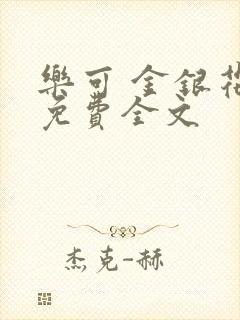 樂可 金銀花
免費全文
杰克-赫